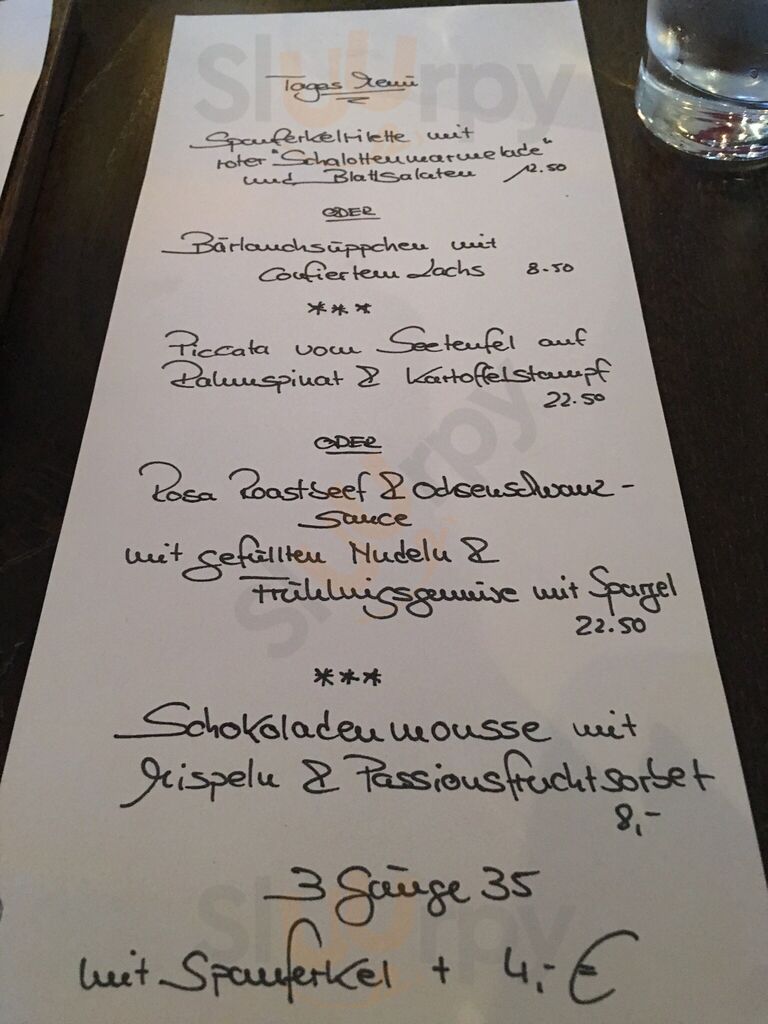 Tages Menü
Spanferkelrilette mit
roter "Schalottenmarmelade"
und Blattsalaten 12.50
ODER
Bärlauchsüppchen mit
confiertem Lachs 8.50
***
Piccata vom Seeteufel auf
Palmspinat & Kartoffelstampf
22.50
ODER
Rosa Roastbeef & Ochsenschwanz-
sauce
mit gefüllten Nudeln &
Frühlingsgemüse mit Spargel
22.50
***
Schokoladenmousse mit
Mispeln & Passionsfruchtsorbet
8,-
3 Gänge 35
mit Spanferkel + 4,- €
Sluurpy
Sluurpy
Sluurpy